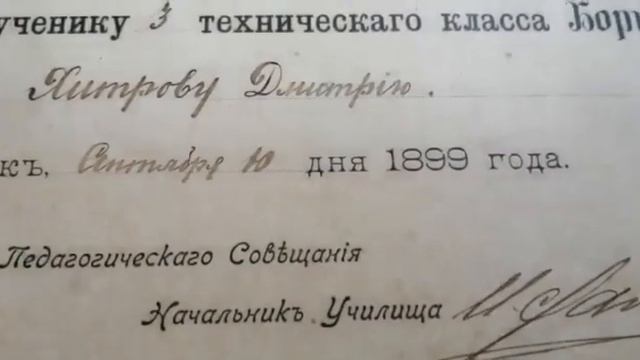 ученику 3 техническаго класса Бор
Хитрову Дмитрію.
къ, Сентября 10 дня 1899 года.
Педагогическаго Совѣщанія
Начальникъ Училища